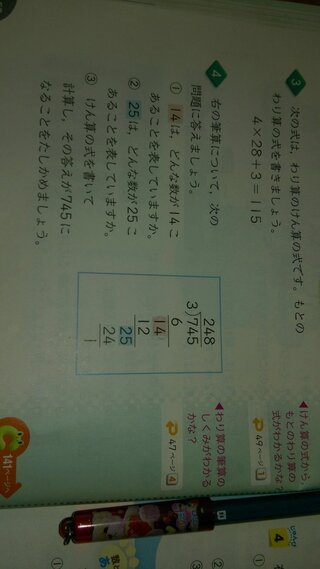 3 次の式は、わり算のけん算の式です。もとの
わり算の式を書きましょう。
4×28+3=115
◀けん算の式から、
もとのわり算の
式がわかるかな?
49ページ 1
4 右の筆算について、次の
問題に答えましょう。
① 14は、どんな数が14こ
あることを表していますか。
② 25は、どんな数が25こ
あることを表していますか。
③ けん算の式を書いて
計算し、その答えが745に
なることをたしかめましょう。
248
3)745
6
14
12
25
24
1
◀わり算の筆算の
しくみがわかる
かな?
47ページ 4
141ページへ
4
①
②
③